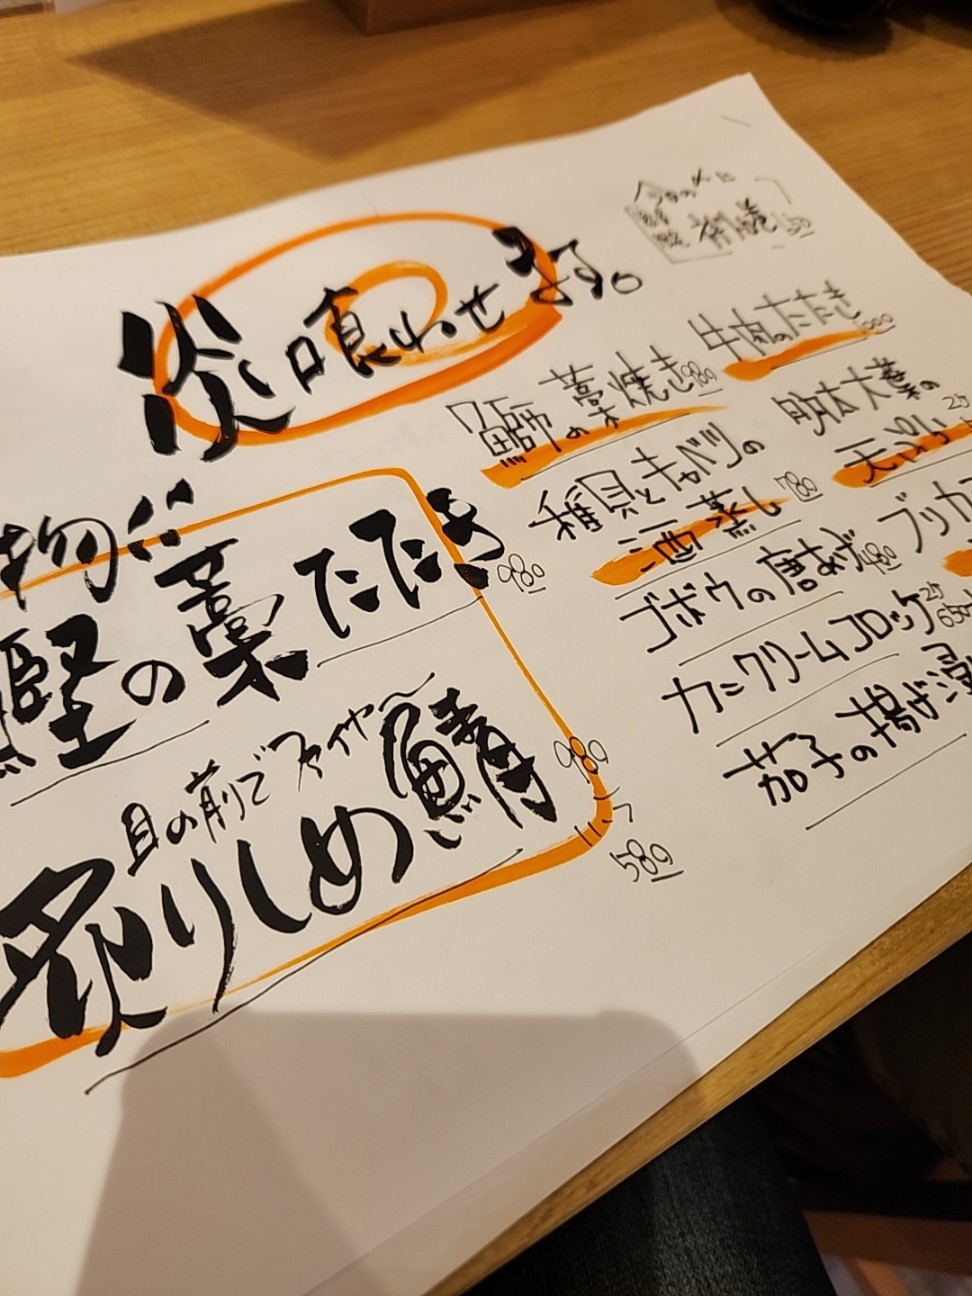 炎喰わせます。
物
鰹の藁たたき 980
目の前でファイヤ〜
炙りしめ鯖 980
ハーフ 580
鰤の藁焼き 980
稚貝とキャベツの
酒蒸し 780
ゴボウの唐あげ 480
カニクリームコロッケ 2ケ 650
茄子の揚げ浸
牛肉のたたき
明太大葉の
天ぷら 2ケ
ブリカ